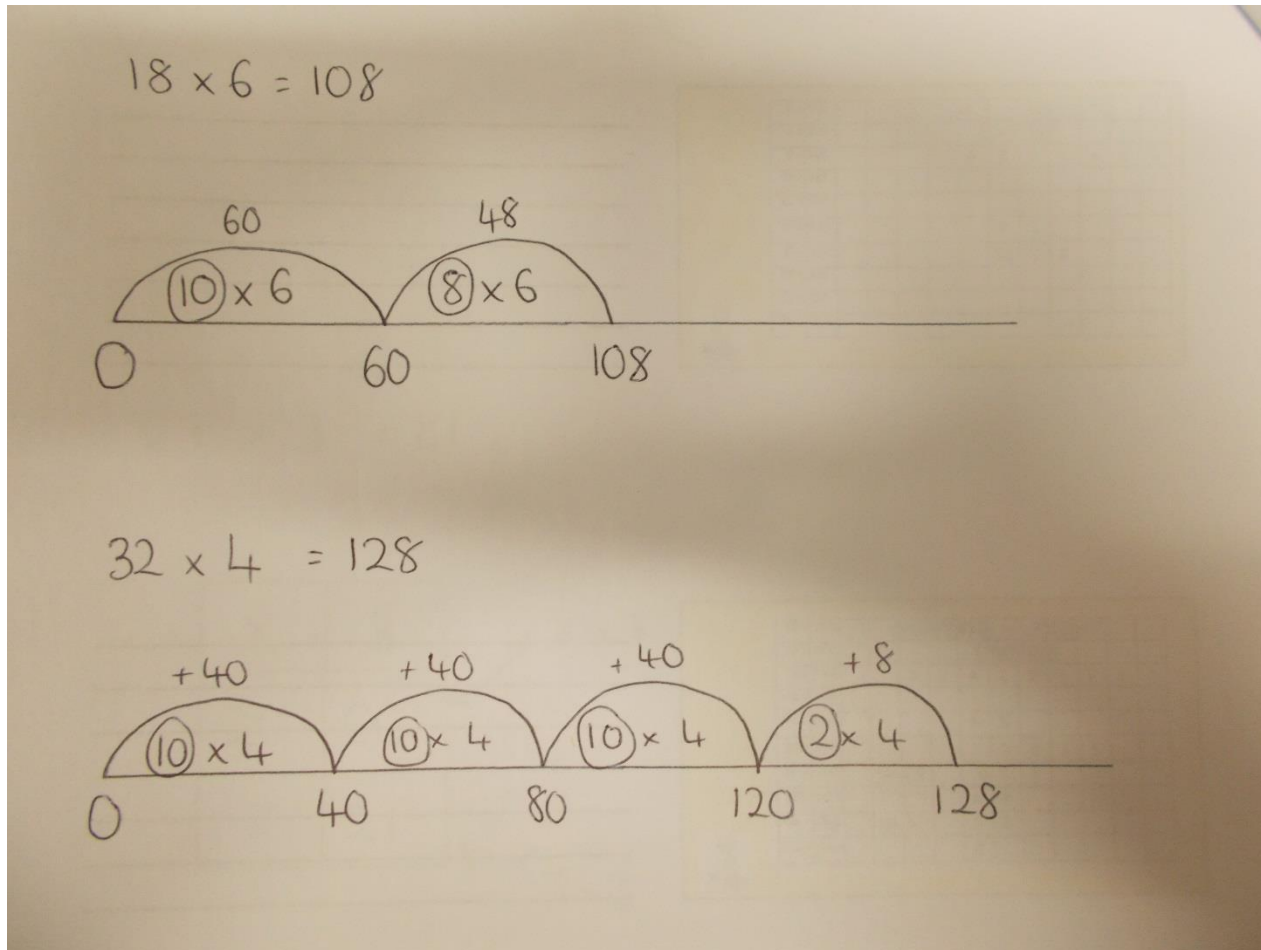 18 × 6 = 108
60 48
10 × 6 8 × 6
0 60 108
32 × 4 = 128
+40 +40 +40 +8
10 × 4 10 × 4 10 × 4 2 × 4
0 40 80 120 128